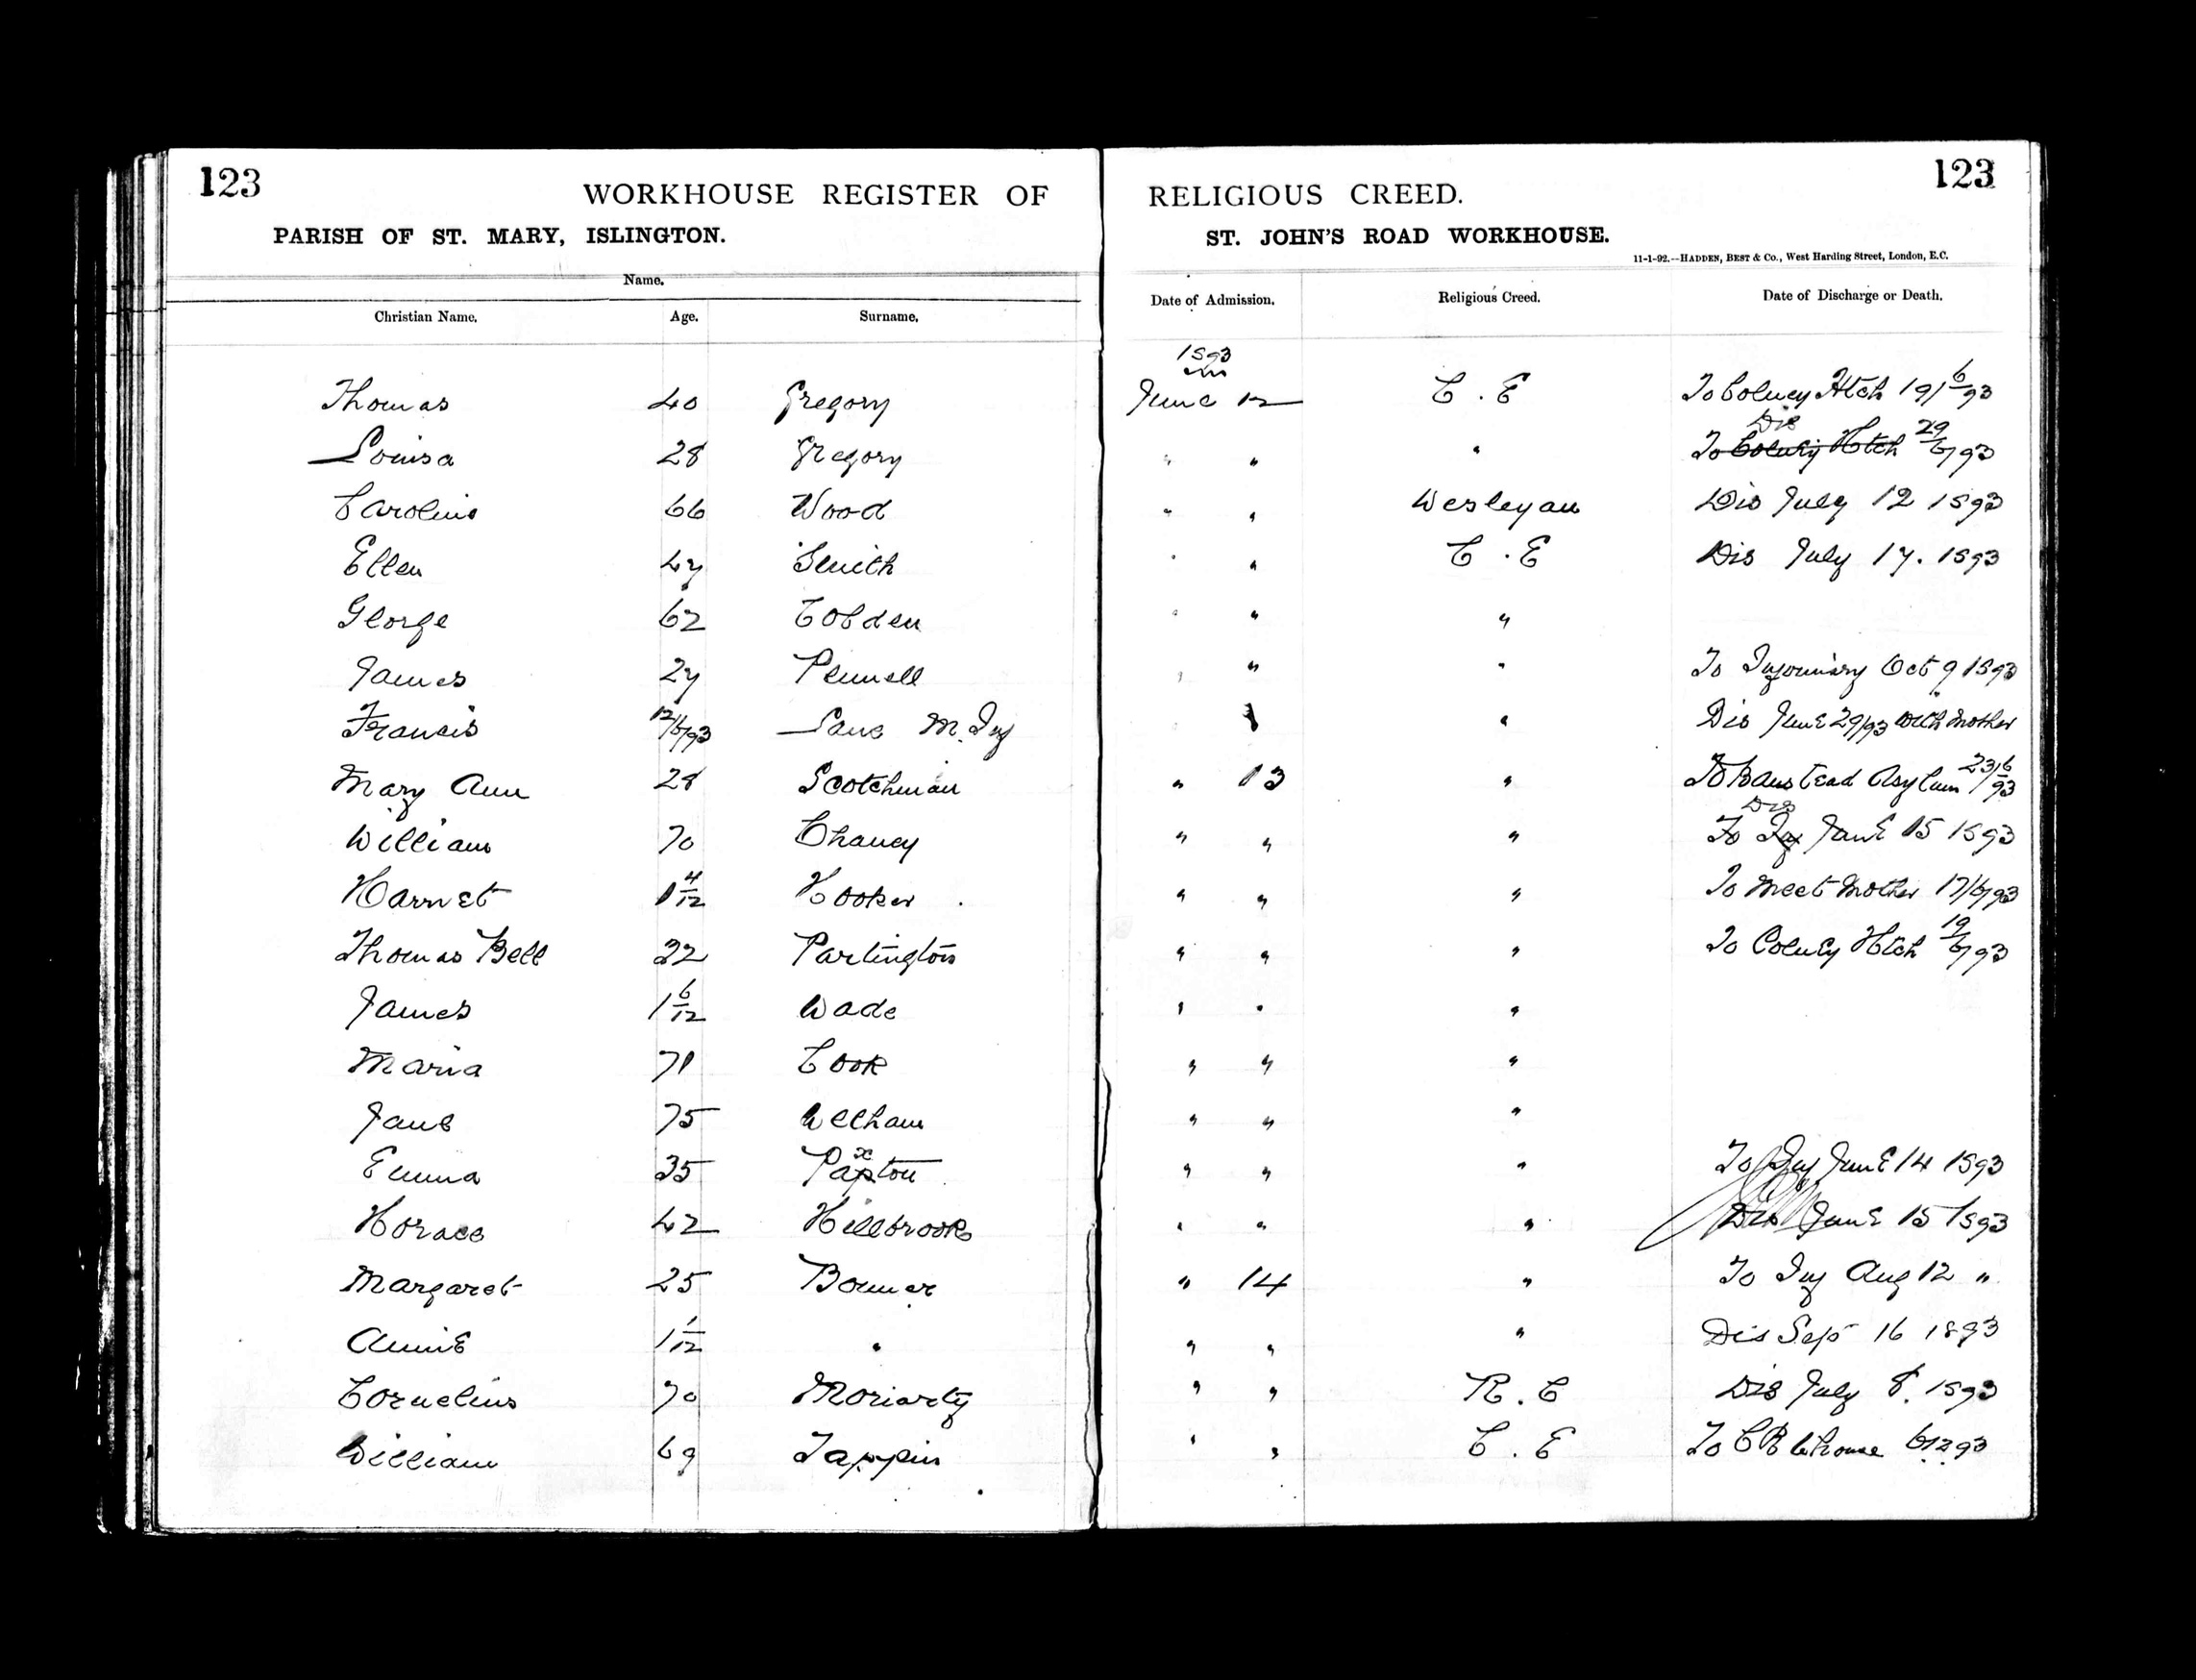 123
WORKHOUSE REGISTER OF RELIGIOUS CREED.
123
PARISH OF ST. MARY, ISLINGTON. ST. JOHN'S ROAD WORKHOUSE.
11-1-92.—HADDEN, BEST & Co., West Harding Street, London, E.C.
Name.
Christian Name. Age. Surname. Date of Admission. Religious Creed. Date of Discharge or Death.
1893
Thomas 40 Gregory June 12 C. E To Colney Htch 19/6/93
Louisa 28 Gregory " " " To Colney Htch Dis 29/6/93
Caroline 66 Wood " " Wesleyan Dis July 12 1893
Ellen 47 Smith " " C. E Dis July 17. 1893
George 62 Cobden " " "
James 27 Pennell " " " To Infirmary Oct 9 1893
Francis 12/6/93 Lane M. Inf " " Dis June 29/93 with Mother
Mary Ann 28 Scotchman " 13 " To Banstead Asylum 23/6/93
William 70 Chaney " " " To Inf Dis June 15 1893
Harriet 1 4/12 Hooker " " " To Meet Mother 17/6/93
Thomas Bell 22 Partington " " " To Colney Htch 19/6/93
James 1 6/12 Wade " " "
Maria 71 Cook " " "
Jane 75 Welham " " "
Emma 35 Paxton " " " To Inf June 14 1893
Horace 42 Hillbrook " " " Dis June 15 1893
Margaret 25 Bonner " 14 " To Inf Aug 12 "
Annie 1 1/12 " " " " Dis Sep 16 1893
Cornelius 70 Moriarty " " R. C Dis July 8. 1893
William 69 Tappin " " C. E To C R 6.12.93